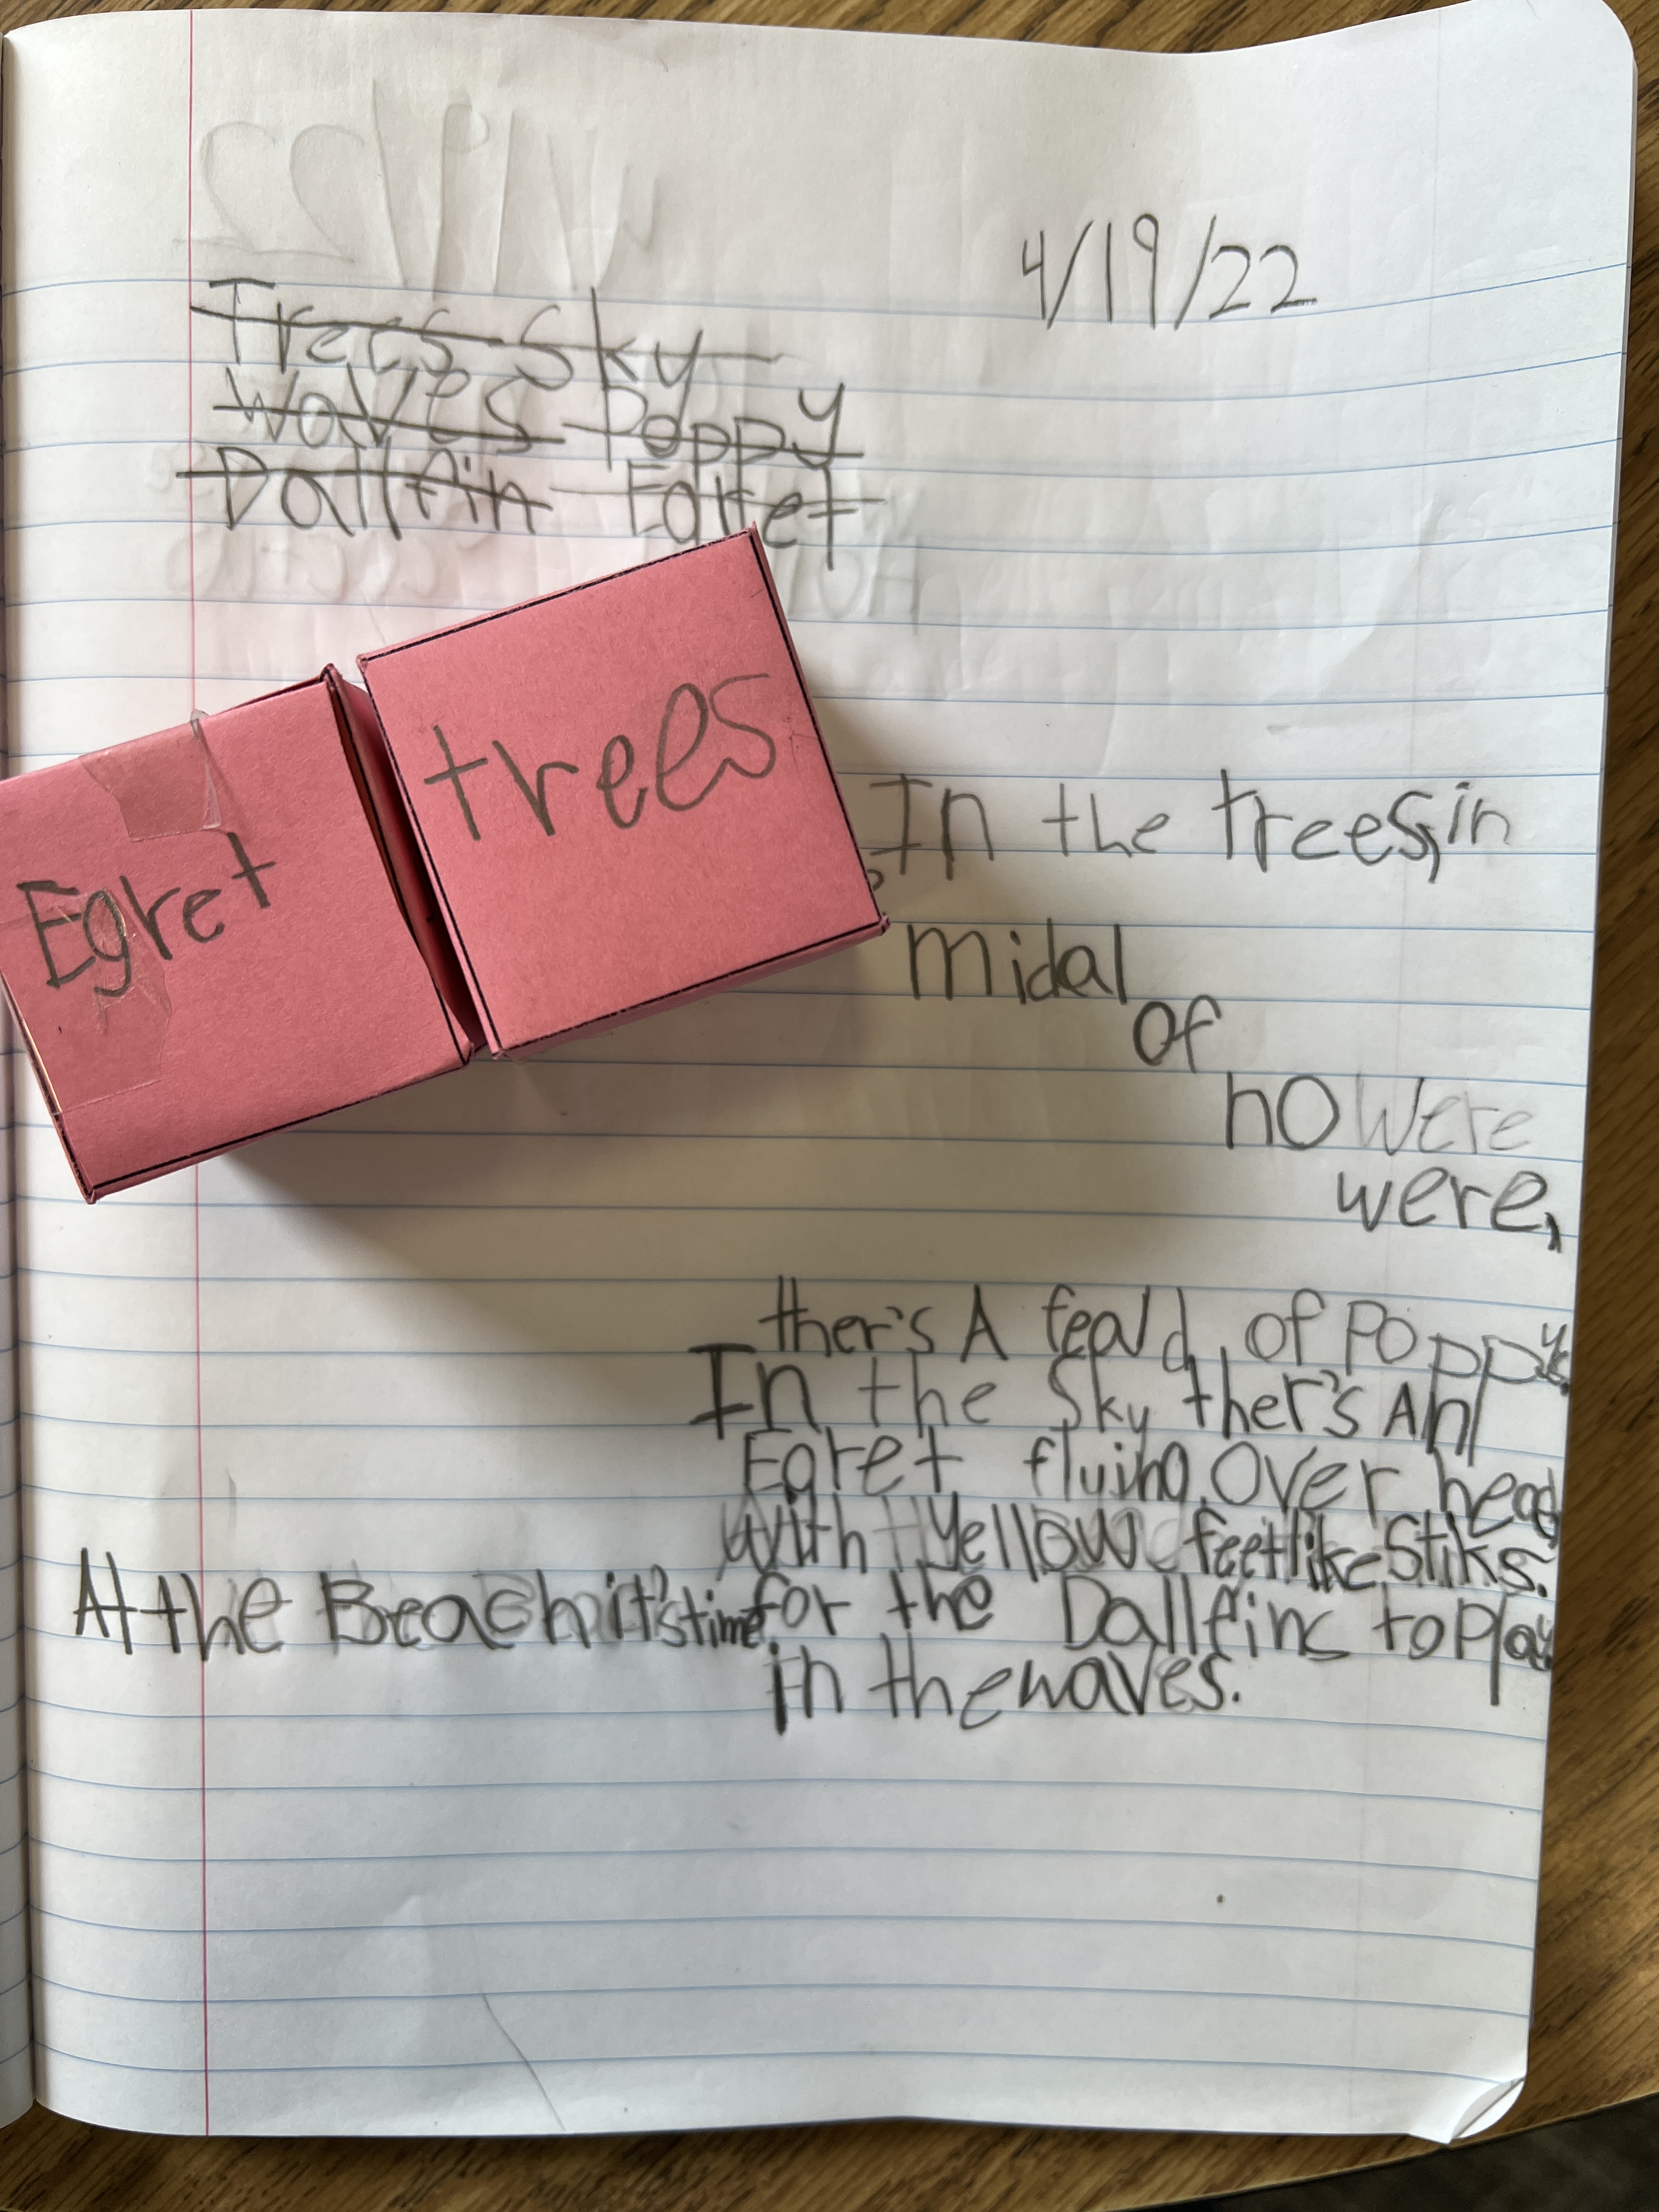 4/19/22
Trees Sky
Waves Poppy
Dallfin Egret
trees
Egret
In the trees, in
midal
of
no were
were,
ther's A feald of Poppys.
In the Sky ther's An
Egret flying over head
with Yellow feet like Stiks.
At the Beach it's time for the Dallfins to Play
in the waves.